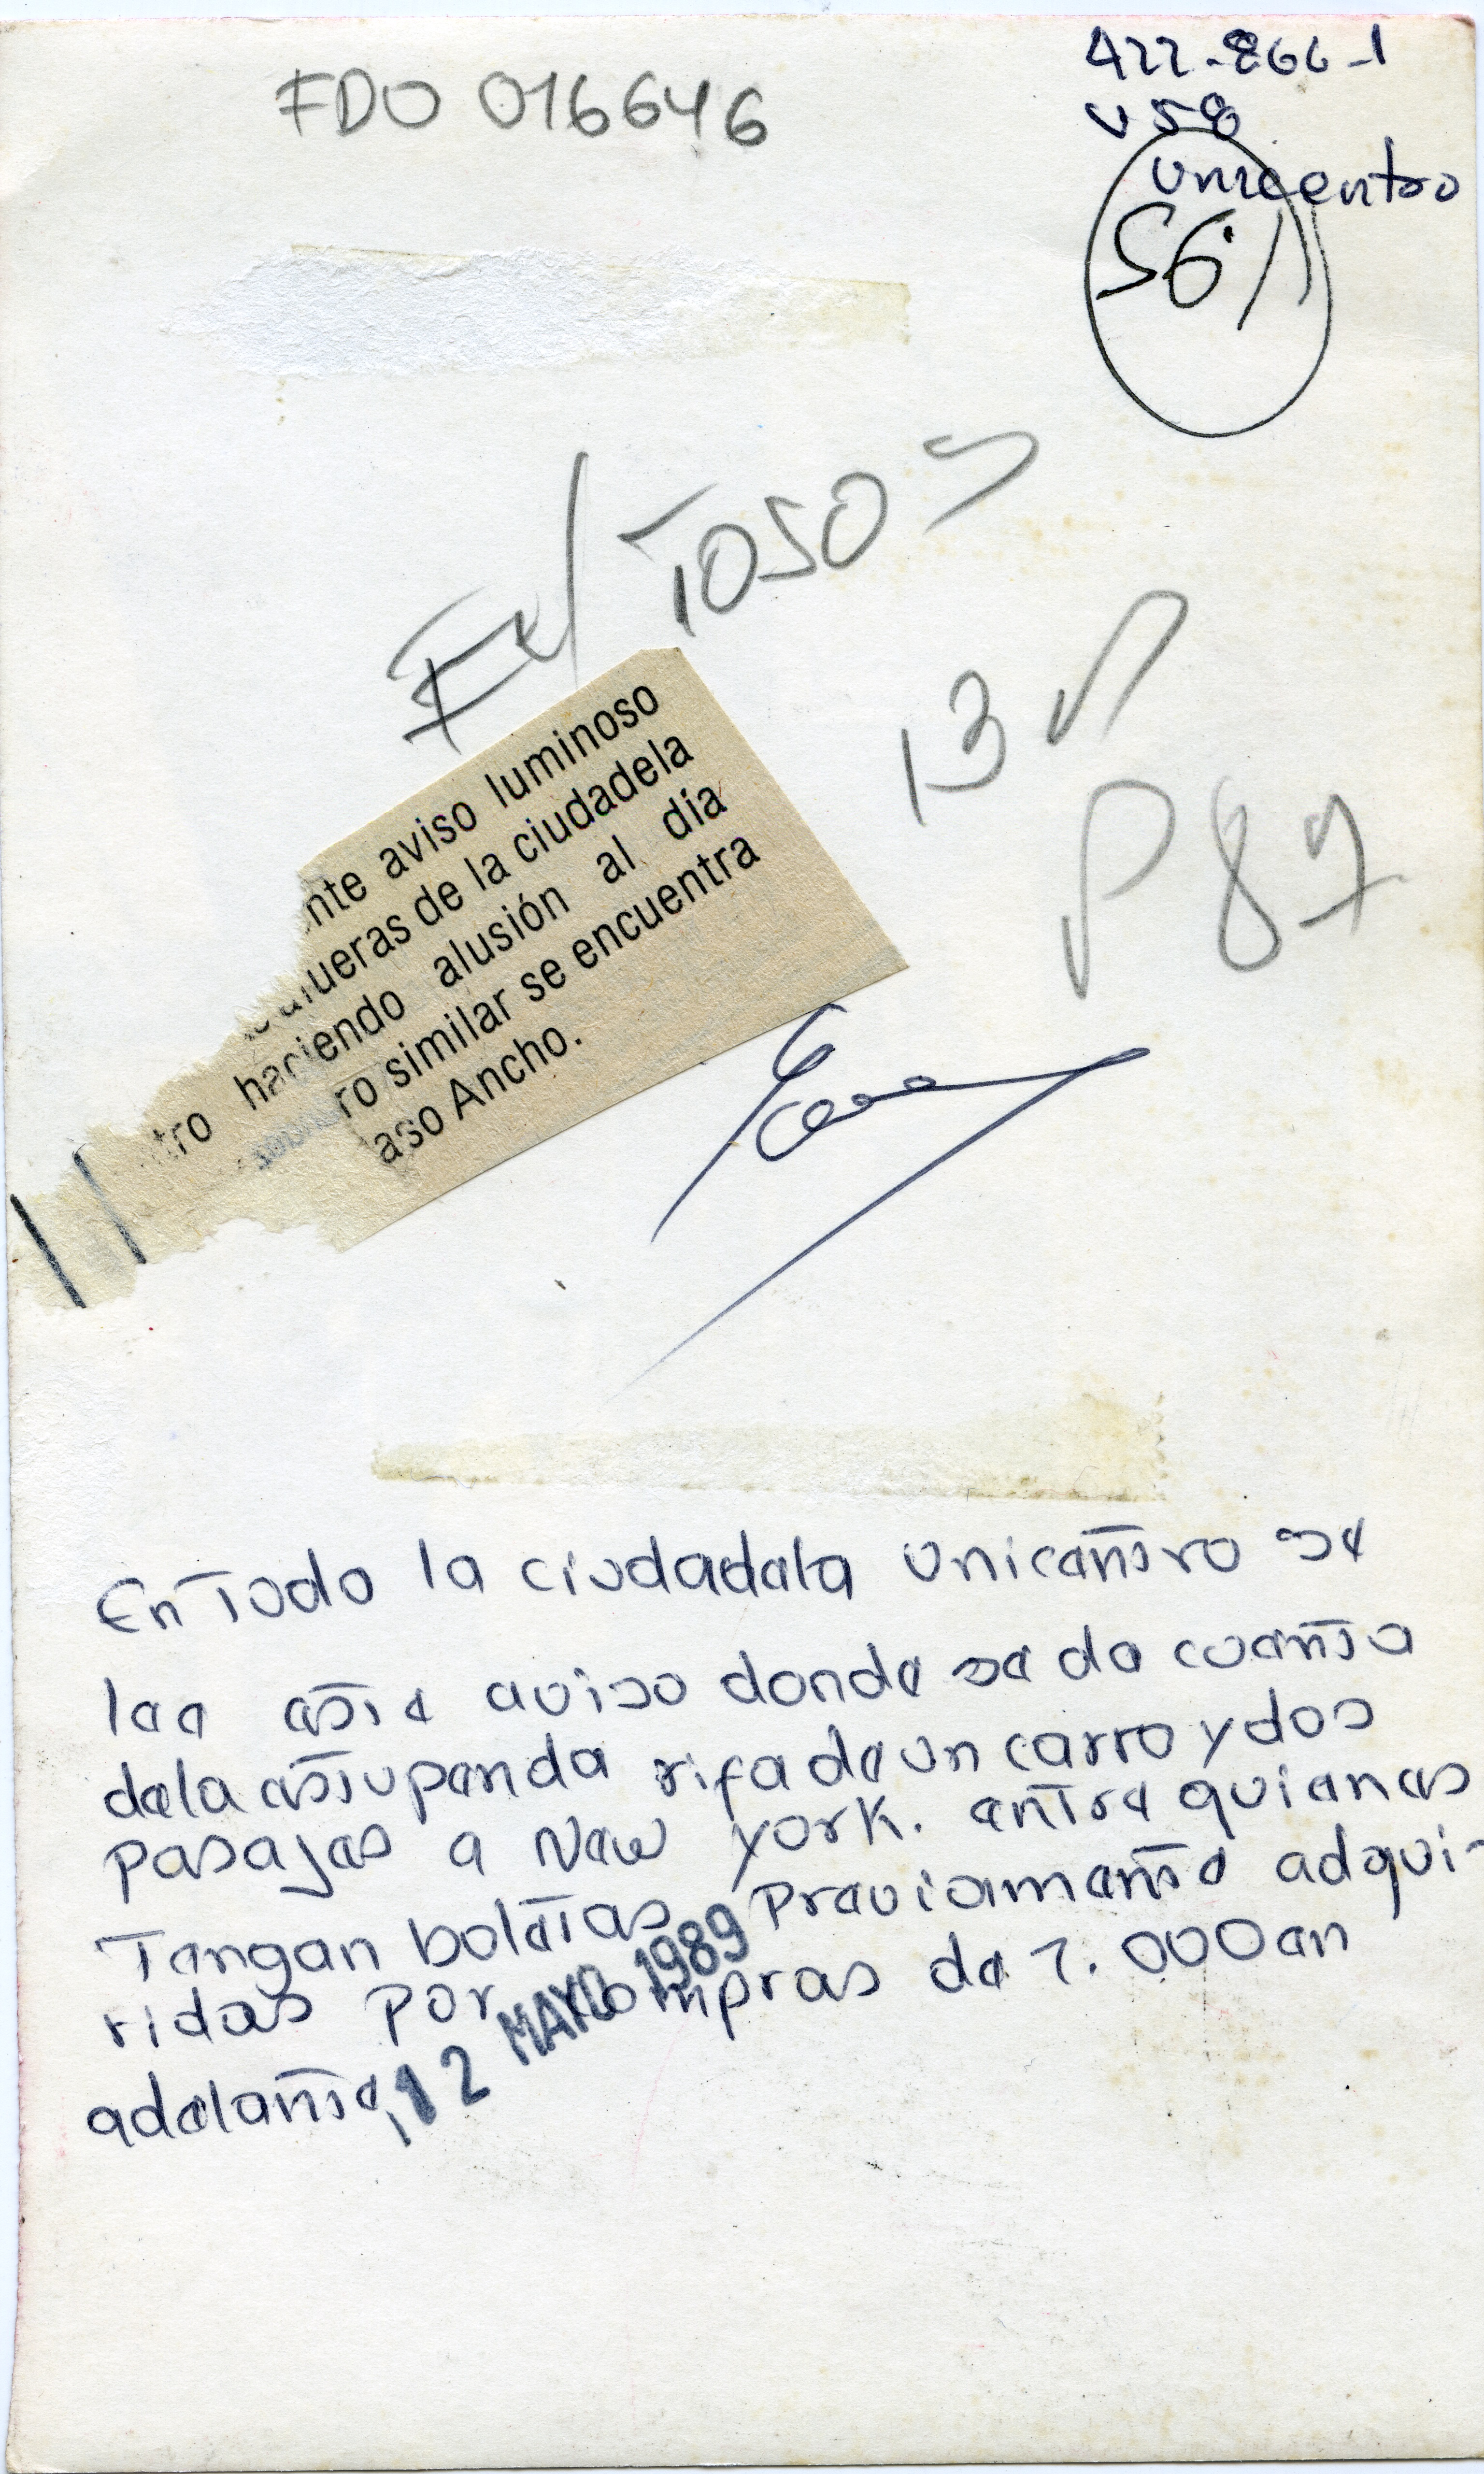 FDO 016646
422-866-1
V58
unicentro
56
Ext TOSO
13
P 87
nte aviso luminoso
afueras de la ciudadela
tro haciendo alusión al día
ro similar se encuentra
aso Ancho.
En Todo la ciudadela unicentro se
lee este aviso donde se da cuenta
de la estupenda rifa de un carro y dos
pasajes a New York. entre quienes
Tengan boletas previamente adqui-
ridas por compras de 7.000 en
adelante,
12 MAYO 1989